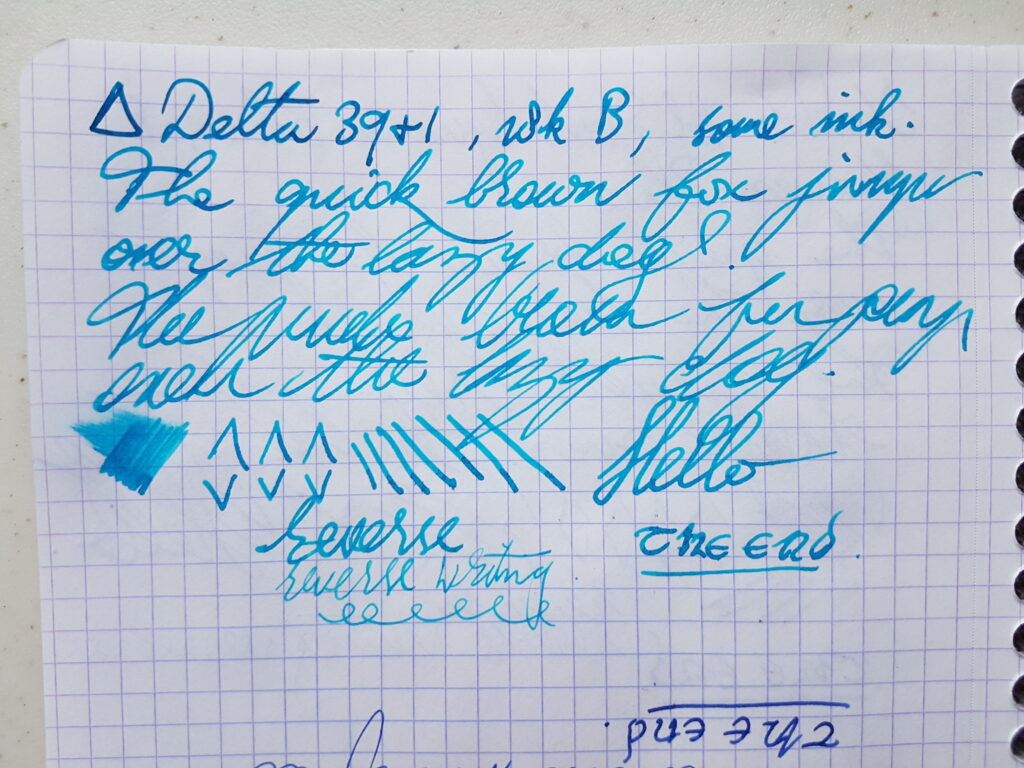 Δ Delta 39+1, 18k B, some ink.
The quick brown fox jumps
over the lazy dog!
The brown
over the lazy dog.
Hello
Reverse
the end.
reverse writing
the end.